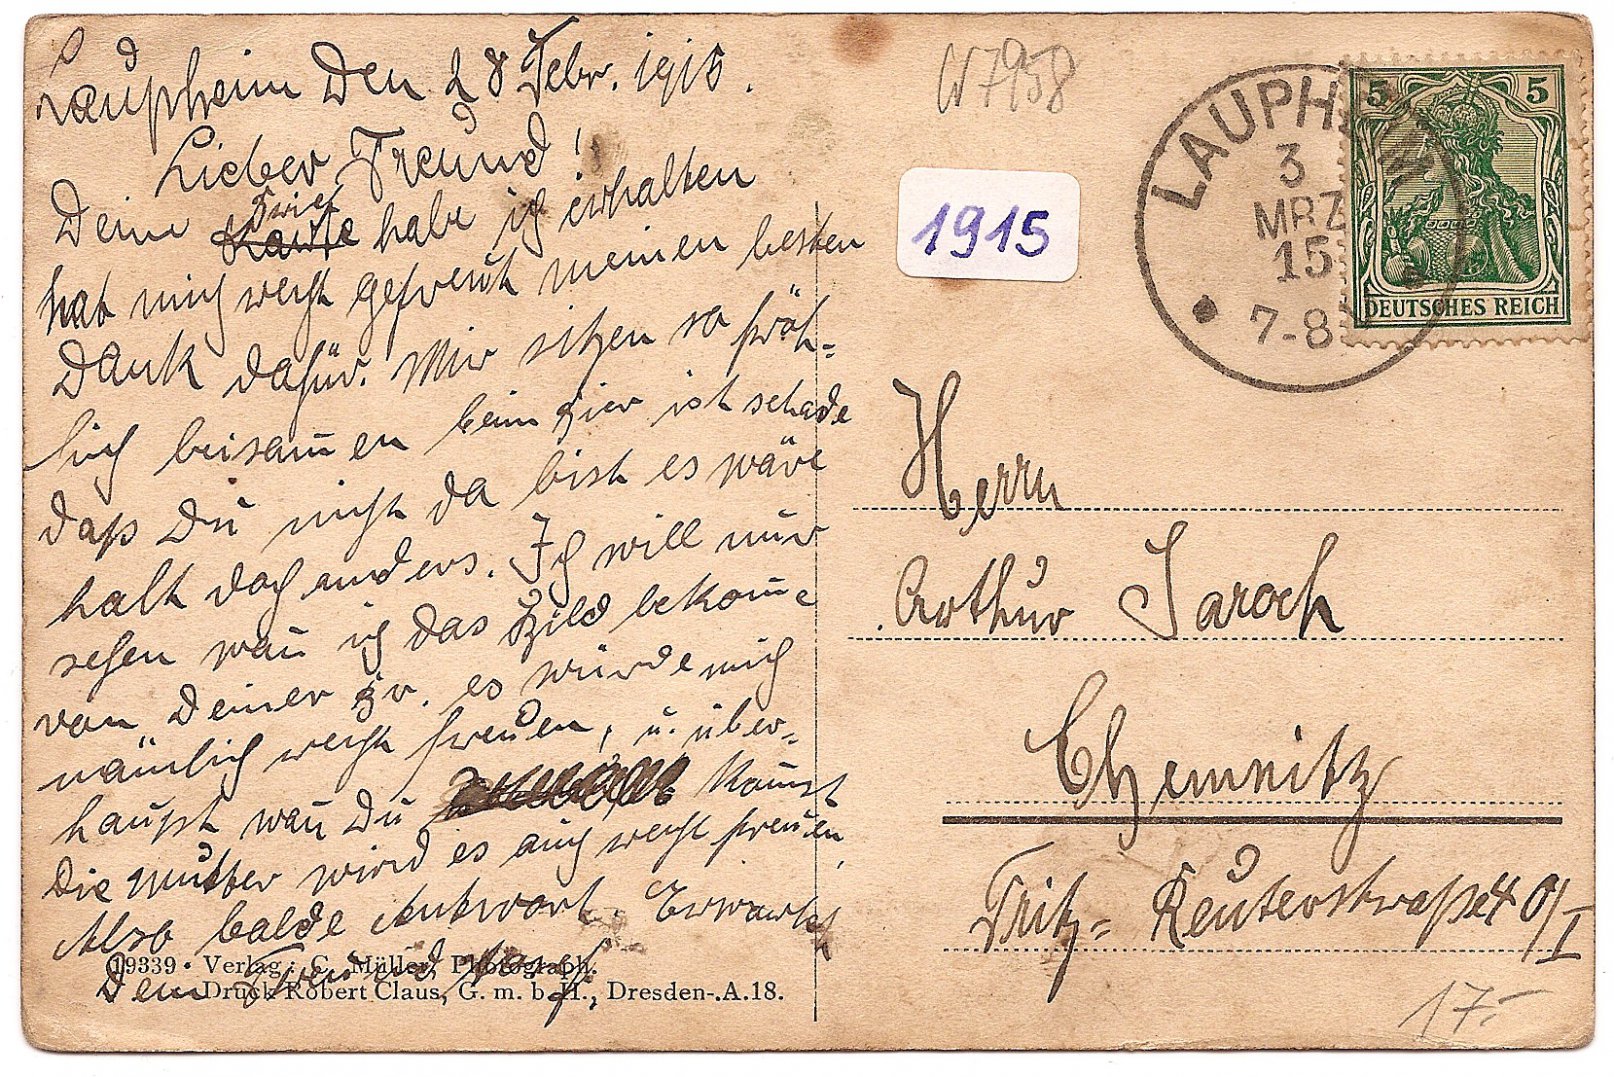 Laupheim Den 28 Febr. 1915.
Lieber Freund!
Deine Brief habe ich erhalten
hat mich recht gefreut meinen besten
Dank dafür. Mir sitzen so fröh=
lich beisam̄en beim Bier ist schade
daß Du nicht da bist es wäre
halt doch anders. Ich will nur
sehen wan̄ ich das Bild bekom̄e
von Deiner Br. es würde mich
nämlich recht freuen, u. über=
haupt wan̄ Du kom̄st
Die Mutter wird es auch recht freuen,
Also balde Antwort. Erwartet
Dein Freund
19339 · Verlag: C. Müller, Photograph.
Druck Robert Claus, G. m. b. H., Dresden-.A.18.
N7958
1915
LAUPHEIM
3
MRZ
15
7-8
5 5
DEUTSCHES REICH
Herrn
Arthur Jaroch
Chemnitz
Fritz= Reuterstraße 40/I
17.-